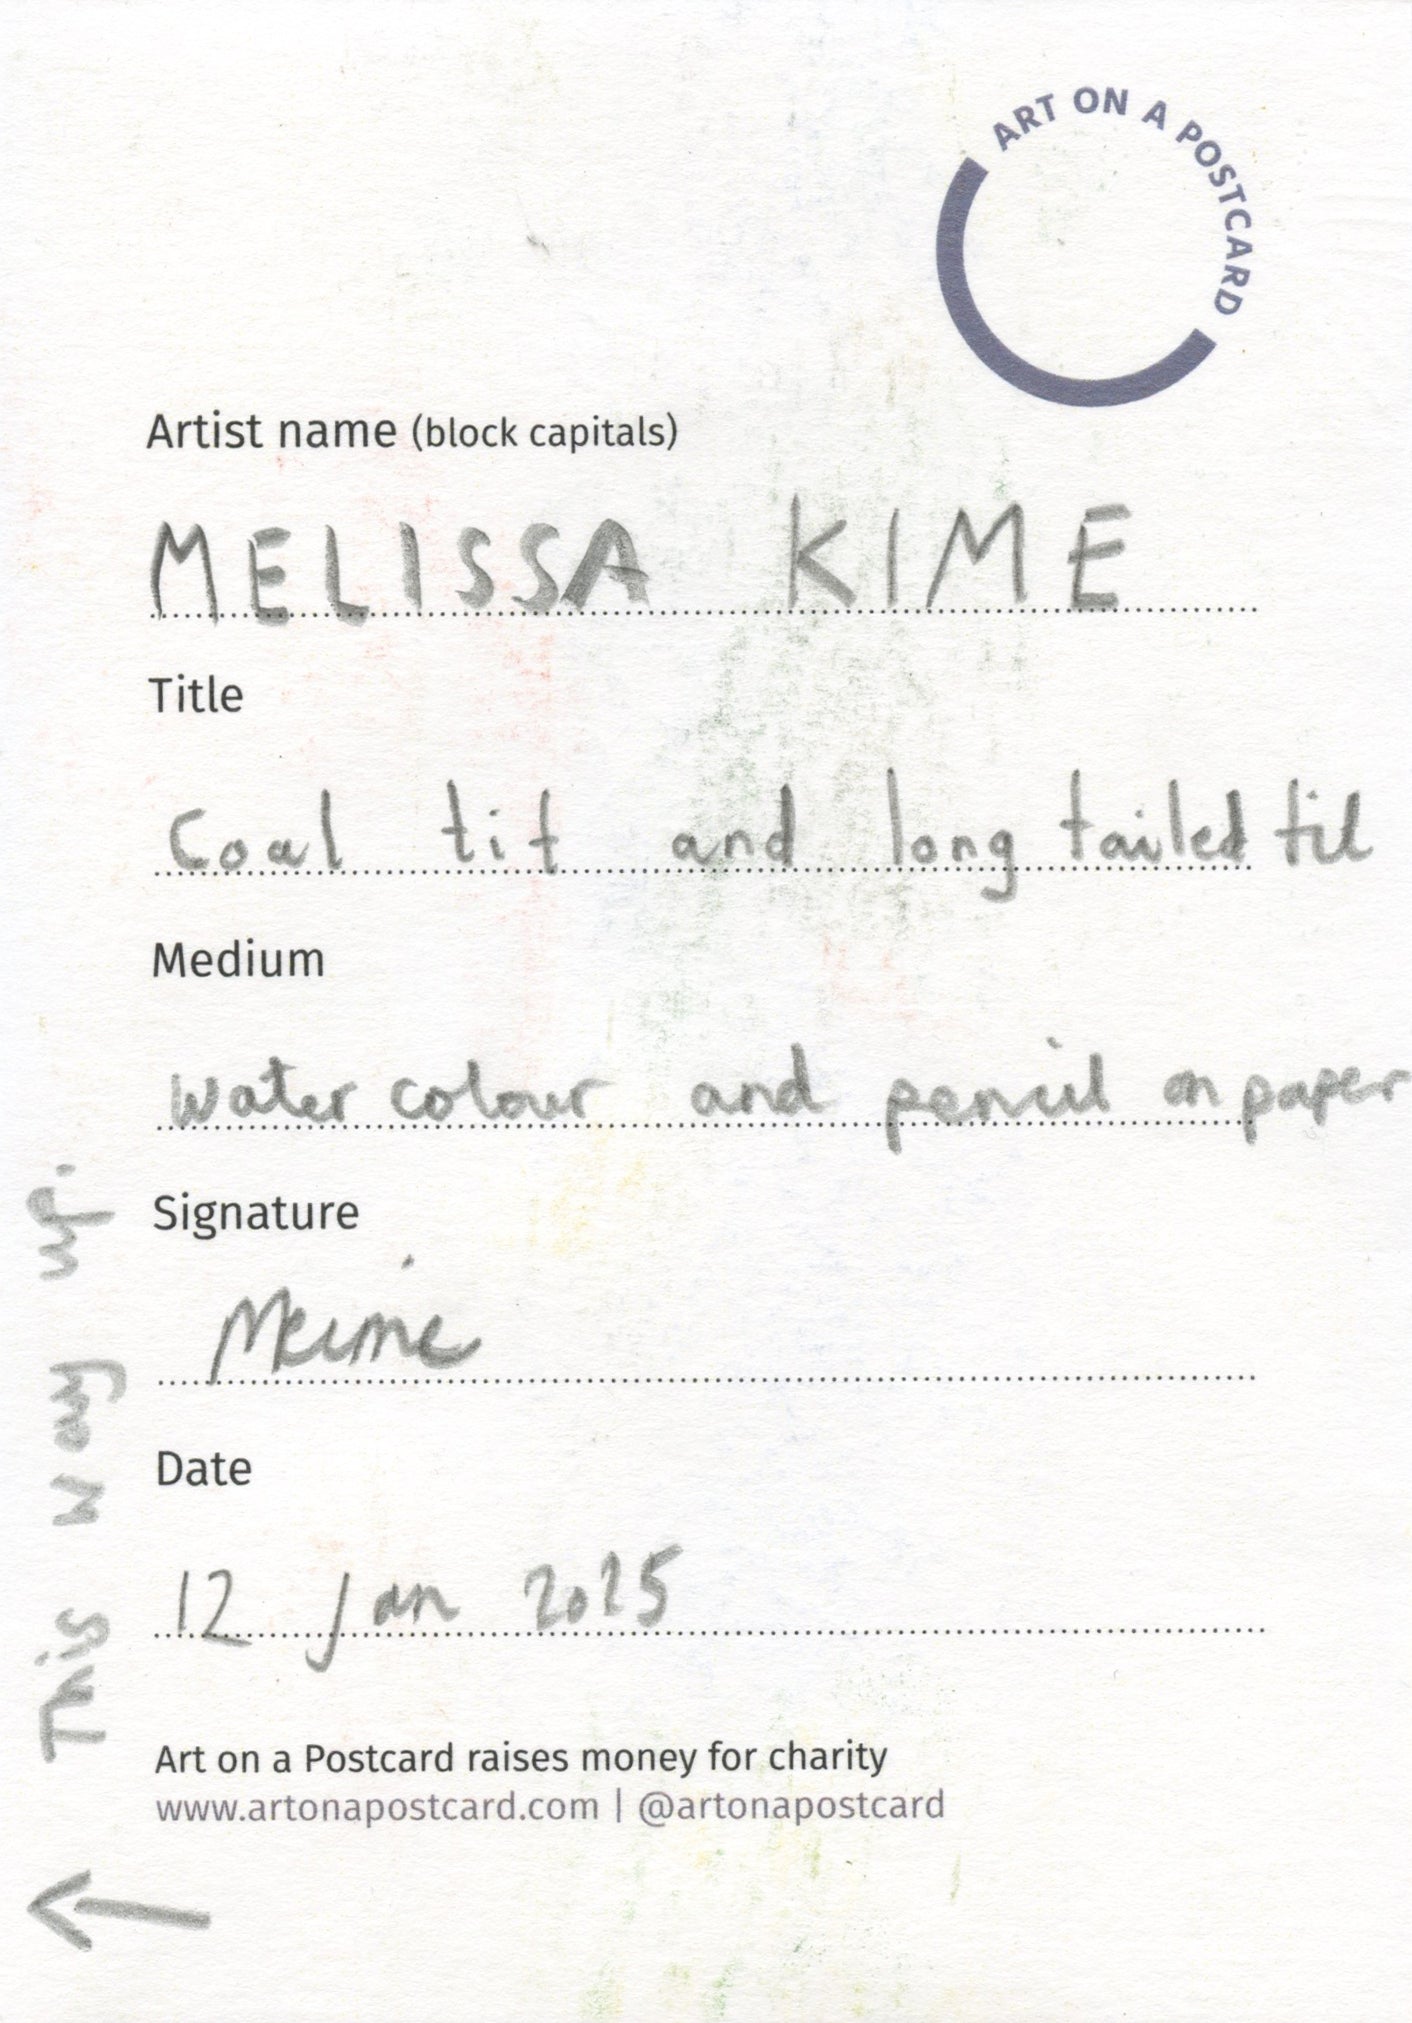 ART ON A POSTCARD
Artist name (block capitals)
MELISSA KIME
Title
Coal tit and long tailed tit
Medium
Water colour and pencil on paper
Signature
MKime
Date
12 Jan 2025
Art on a Postcard raises money for charity
www.artonapostcard.com | @artonapostcard
This way up.